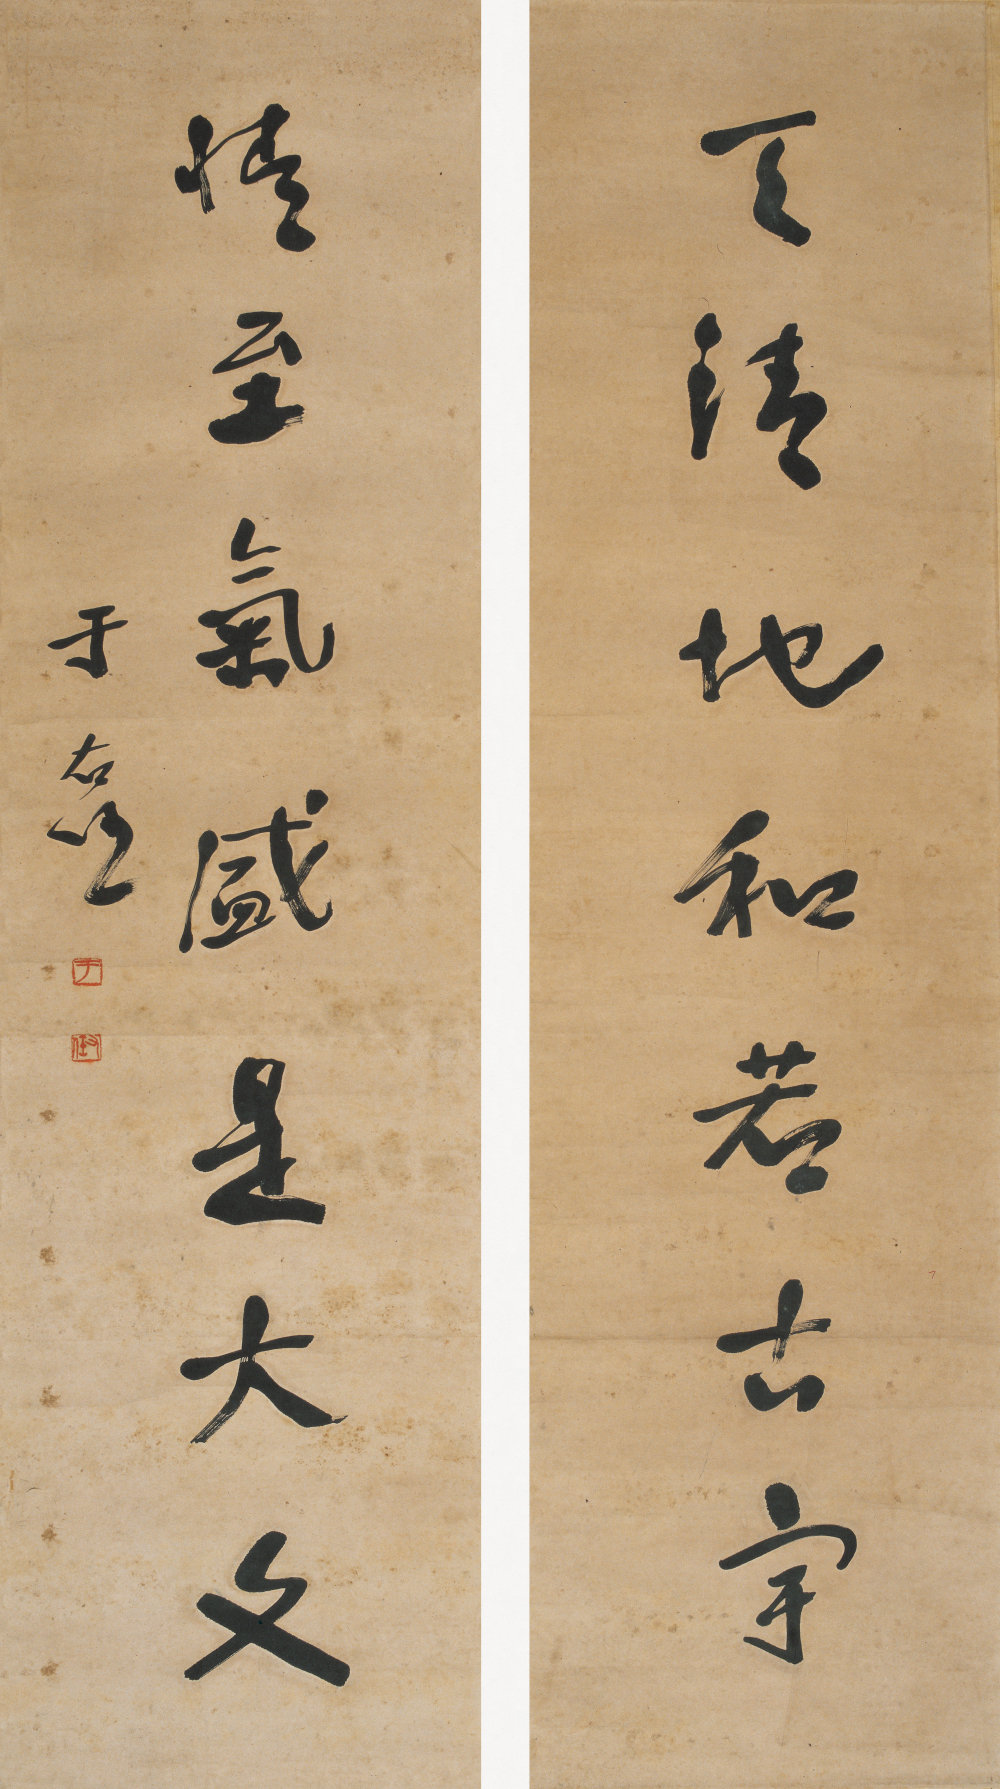 天清地和若古宇
情至氣盛是大文
于右任